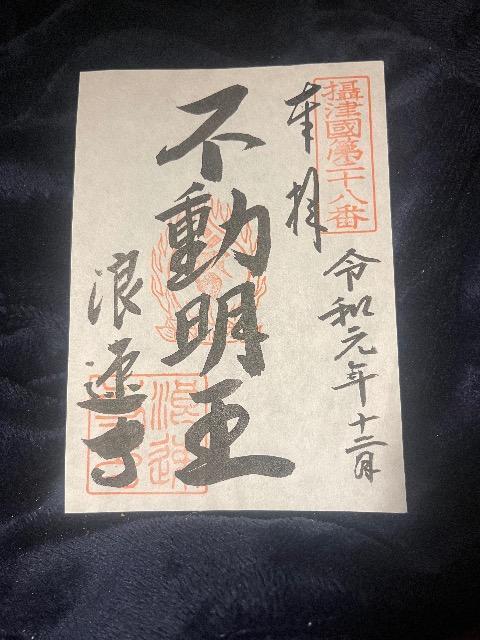 攝津國第二十八番
奉拝
令和元年十二月
不動明王
浪速寺
浪速寺